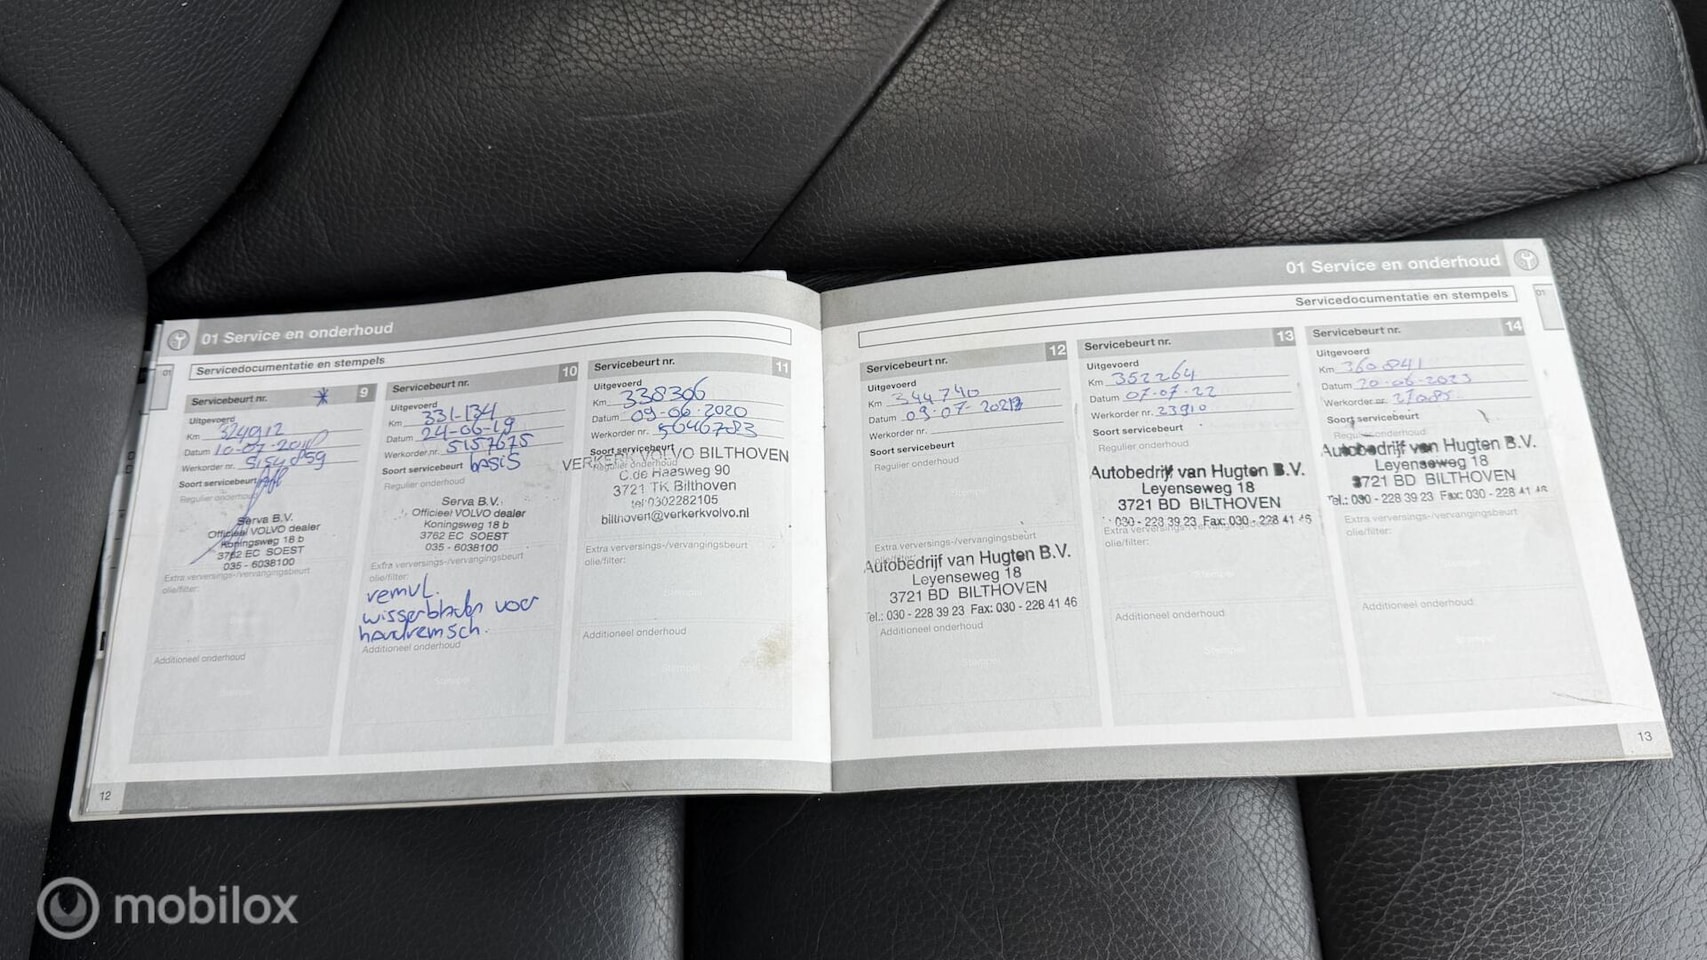 01 Service en onderhoud
Servicedocumentatie en stempels
01
Servicebeurt nr. * 9
Uitgevoerd
Km 324912
Datum
Werkorder nr. 5154859
Soort servicebeurt
Regulier onderhoud
Serva B.V.
Officieel VOLVO dealer
Koningsweg 18 b
3762 EC SOEST
035 - 6038100
Extra verversings-/vervangingsbeurt
olie/filter:
Additioneel onderhoud
Stempel
Servicebeurt nr. 10
Uitgevoerd
Km 331-134
Datum 24-06-19
Werkorder nr. 5157675
Soort servicebeurt basis
Regulier onderhoud
Serva B.V.
Officieel VOLVO dealer
Koningsweg 18 b
3762 EC SOEST
035 - 6038100
Extra verversings-/vervangingsbeurt
olie/filter:
remvl.
wisserbladen voor
handremsch.
Additioneel onderhoud
Stempel
Servicebeurt nr. 11
Uitgevoerd
Km 338306
Datum 09-06-2020
Werkorder nr. 5646783
Soort servicebeurt
Regulier onderhoud
VERKERK VOLVO BILTHOVEN
C de Haasweg 90
3721 TK Bilthoven
tel 0302282105
bilthoven@verkerkvolvo.nl
Extra verversings-/vervangingsbeurt
olie/filter:
Additioneel onderhoud
Stempel
12
01 Service en onderhoud
Servicedocumentatie en stempels
01
Servicebeurt nr. 12
Uitgevoerd
Km 344740
Datum
Werkorder nr.
Soort servicebeurt
Regulier onderhoud
Extra verversings-/vervangingsbeurt
olie/filter:
Autobedrijf van Hugten B.V.
Leyenseweg 18
3721 BD BILTHOVEN
Tel.: 030 - 228 39 23 Fax: 030 - 228 41 46
Additioneel onderhoud
Stempel
Servicebeurt nr. 13
Uitgevoerd
Km 352264
Datum 07-07-22
Werkorder nr. 23910
Soort servicebeurt
Regulier onderhoud
Autobedrijf van Hugten B.V.
Leyenseweg 18
3721 BD BILTHOVEN
030 - 228 39 23 Fax: 030 - 228 41 46
Extra verversings-/vervangingsbeurt
olie/filter:
Additioneel onderhoud
Stempel
Servicebeurt nr. 14
Uitgevoerd
Km 360841
Datum 20-06-2023
Werkorder nr.
Soort servicebeurt
Regulier onderhoud
Autobedrijf van Hugten B.V.
Leyenseweg 18
3721 BD BILTHOVEN
Tel.: 030 - 228 39 23 Fax: 030 - 228 41 46
Extra verversings-/vervangingsbeurt
olie/filter:
Additioneel onderhoud
Stempel
13
mobilox